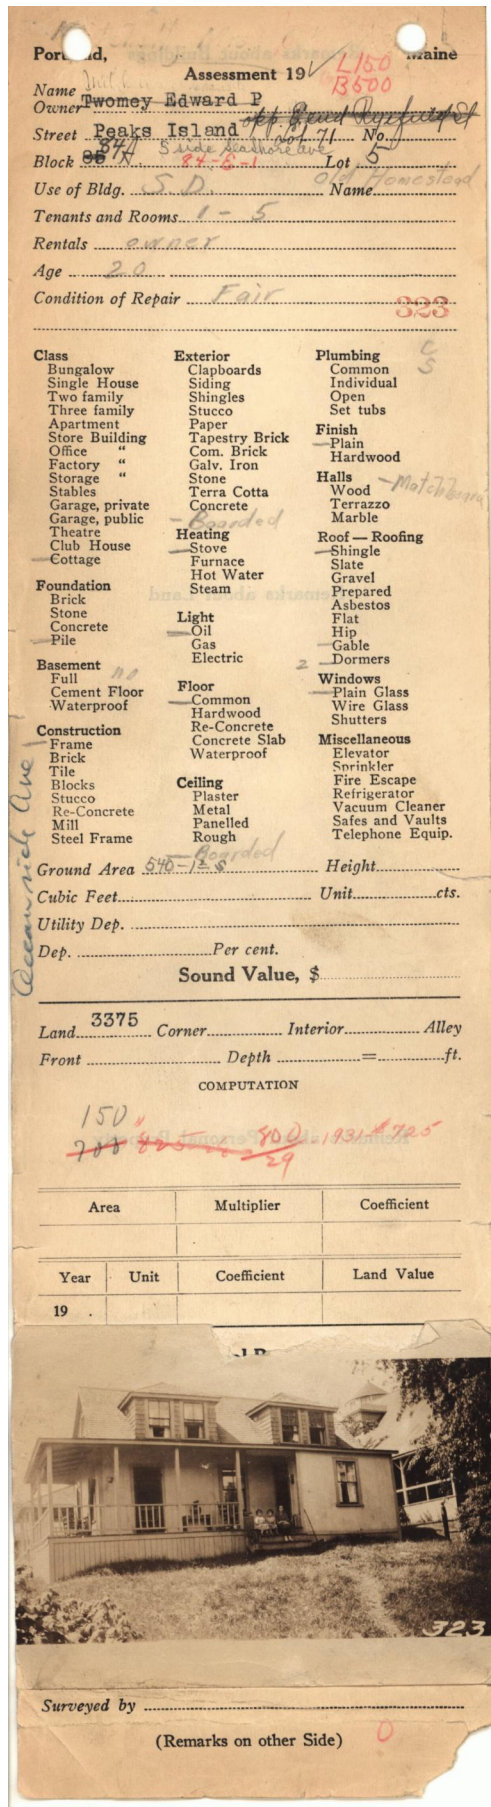 Portland, Maine
Assessment 19
L150
B500
Name
Owner Twomey Edward P
Street Peaks Island No.
S side Seashore Ave
Block 85 84A 84-E-1 Lot 5
Use of Bldg. S.D. Name Old Homestead
Tenants and Rooms 1 - 5
Rentals owner
Age 20
Condition of Repair Fair
323
Class
Bungalow
Single House
Two family
Three family
Apartment
Store Building
Office "
Factory "
Storage "
Stables
Garage, private
Garage, public
Theatre
Club House
Cottage
Foundation
Brick
Stone
Concrete
Pile
Basement
Full no
Cement Floor
Waterproof
Construction
Frame
Brick
Tile
Blocks
Stucco
Re-Concrete
Mill
Steel Frame
Oceanside Ave
Exterior
Clapboards
Siding
Shingles
Stucco
Paper
Tapestry Brick
Com. Brick
Galv. Iron
Stone
Terra Cotta
Concrete
Boarded
Heating
Stove
Furnace
Hot Water
Steam
Light
Oil
Gas
Electric
Floor
Common
Hardwood
Re-Concrete
Concrete Slab
Waterproof
Ceiling
Plaster
Metal
Panelled
Rough
Boarded
Plumbing C
Common S
Individual
Open
Set tubs
Finish
Plain
Hardwood
Halls
Wood
Terrazzo
Marble
Roof — Roofing
Shingle
Slate
Gravel
Prepared
Asbestos
Flat
Hip
Gable
2 Dormers
Windows
Plain Glass
Wire Glass
Shutters
Miscellaneous
Elevator
Sprinkler
Fire Escape
Refrigerator
Vacuum Cleaner
Safes and Vaults
Telephone Equip.
Ground Area 540 - 1 2 s Height
Cubic Feet Unit cts.
Utility Dep.
Dep. Per cent.
Sound Value, $
Land 3375 Corner Interior Alley
Front Depth = ft.
COMPUTATION
150
700 825 800 1931 $725
29
Area Multiplier Coefficient
Year Unit Coefficient Land Value
19 .
323
Surveyed by
(Remarks on other Side) 0